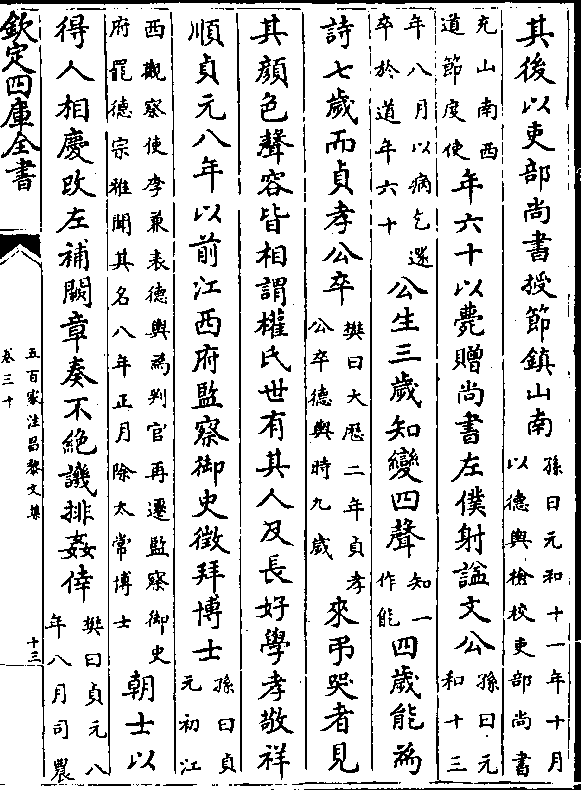 其後以吏部尚書授節鎮山南孫曰元和十一年十月以德輿檢校吏部尚書
充山南西道節度使年六十以薨贈尚書左僕射諡文公孫曰元和十三
年八月以病乞還卒於道年六十公生三歲知變四聲知一作能四歲能為
詩七歲而貞孝公卒樊曰大歷二年貞孝公卒德輿時九歲來弔哭者見
其顏色聲容皆相謂權氏世有其人及長好學孝敬祥
順貞元八年以前江西府監察御史徵拜博士孫曰貞元初江
西觀察使李兼表德輿為判官再遷監察御史府罷德宗雅聞其名八年正月除太常博士朝士以
得人相慶改左補闕章奏不絕譏排姦倖樊曰貞元八年八月司農
欽定四庫全書
五百家注昌黎文集
卷三十
十三